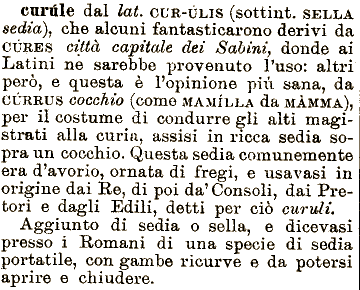 curúle dal lat. CUR-ÙLIS (sottint. SELLA
sedia), che alcuni fantasticarono derivi da
CÚRES città capitale dei Sabini, donde ai
Latini ne sarebbe provenuto l'uso: altri
però, e questa è l'opinione più sana, da
CÚRRUS cocchio (come MAMÍLLA da MÀMMA),
per il costume di condurre gli alti magi-
strati alla curia, assisi in ricca sedia so-
pra un cocchio. Questa sedia comunemente
era d'avorio, ornata di fregi, e usavasi in
origine dai Re, di poi da' Consoli, dai Pre-
tori e dagli Edili, detti per ciò curuli.
Aggiunto di sedia o sella, e dicevasi
presso i Romani di una specie di sedia
portatile, con gambe ricurve e da potersi
aprire e chiudere.